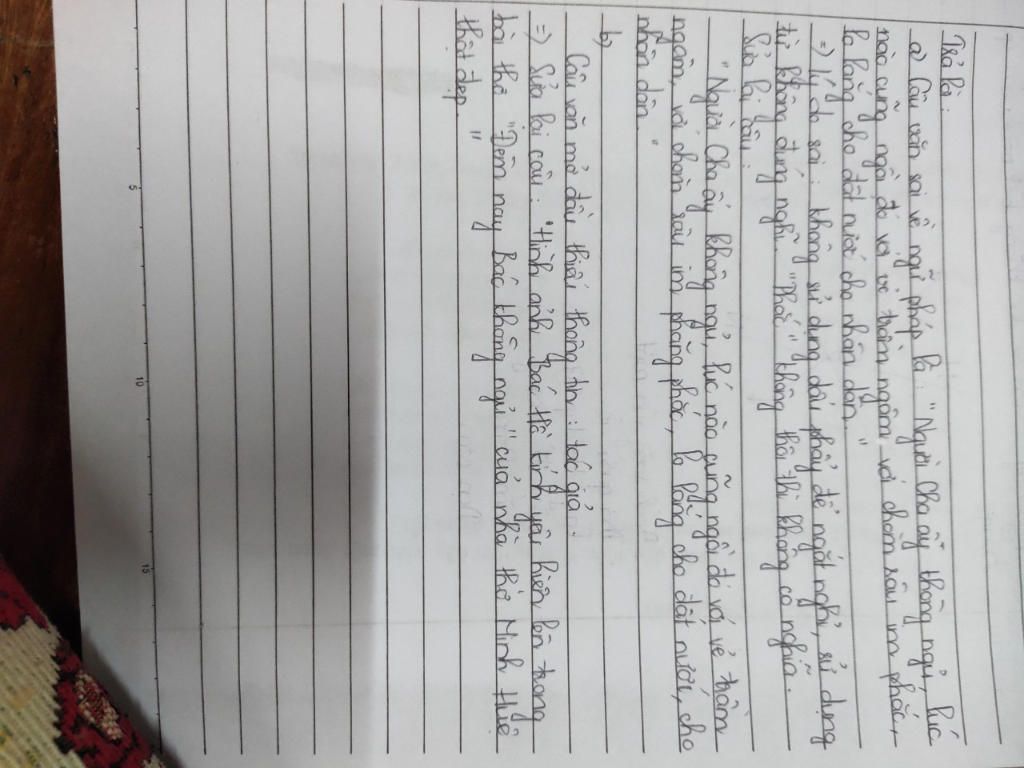 Trả lời:
a) Câu văn sai về ngữ pháp là: "Người Cha ấy không ngủ, lúc
nào cũng ngồi đó với vẻ trầm ngâm, với chòm râu im phắc,
lo lắng cho đất nước cho nhân dân."
=) Lý do sai: không sử dụng dấu phẩy để ngắt nghỉ, sử dụng
từ không đúng nghĩ. "Phắc" không thôi thì không có nghĩa.
Sửa lại câu:
"Người Cha ấy không ngủ, lúc nào cũng ngồi đó với vẻ trầm
ngâm, với chòm râu im phăng phắc, lo lắng cho đất nước, cho
nhân dân."
b)
Câu văn mở đầu thiếu thông tin: tác giả.
=) Sửa lại câu: "Hình ảnh Bác Hồ kính yêu hiện lên trong
bài thơ "Đêm nay Bác không ngủ" của nhà thơ Minh Huệ
thật đẹp."
5
10
15